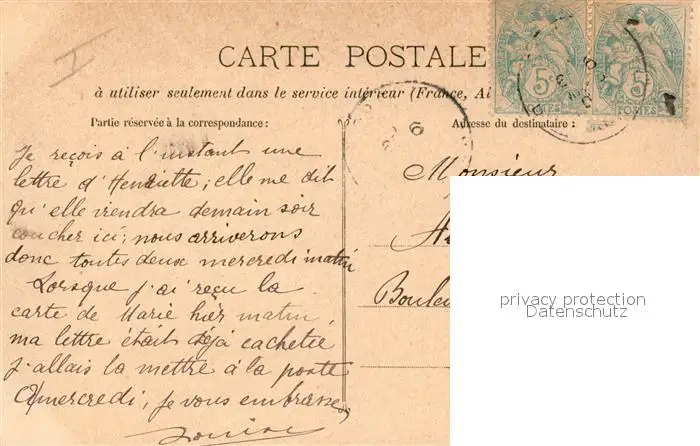 CARTE POSTALE
à utiliser seulement dans le service intérieur (France, Al
Partie réservée à la correspondance :
Adresse du destinataire :
5c
POSTES
5c
POSTES
Je reçois à l'instant une
lettre d'Henriette; elle me dit
qu'elle viendra demain soir
coucher ici; nous arriverons
donc toutes deux mercredi matin
Lorsque j'ai reçu la
carte de Marie hier matin,
ma lettre était déjà cachetée
j'allais la mettre à la poste
A mercredi, je vous embrasse,
Louise
Monsieur
Boule
privacy protection
Datenschutz